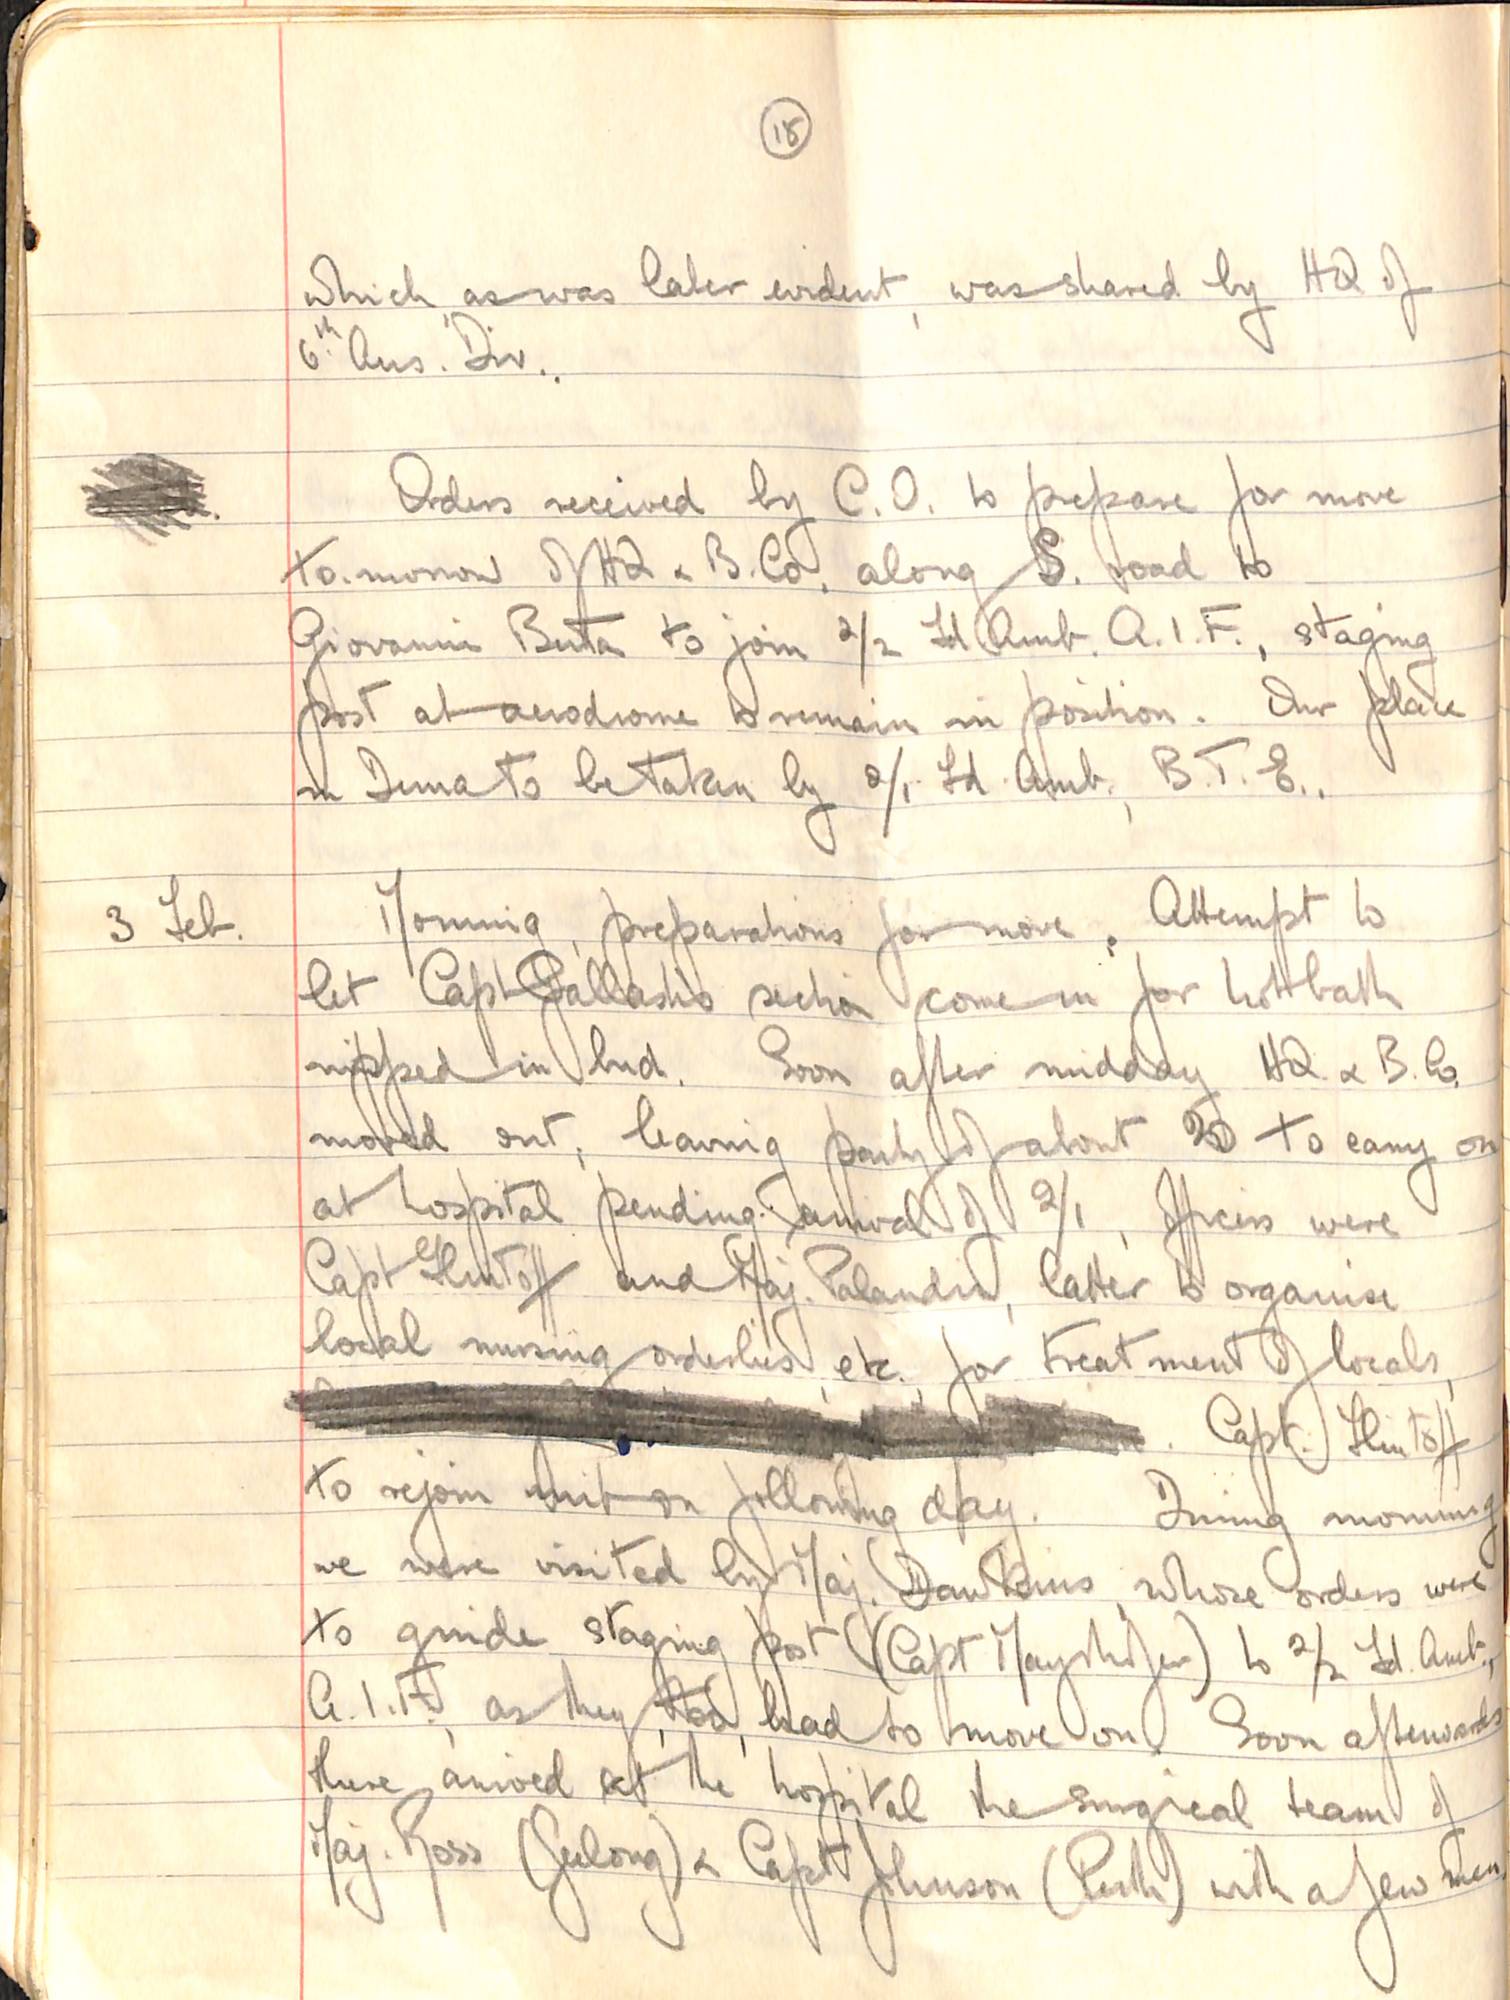 18
which, as was later evident, was shared by HQ of
6th Aus. Div..
Orders received by C.O. to prepare for move
to-morrow of HQ & B. Co. along S. road to
Giovanni Berta to join 2/2 Fd. Amb. A.I.F., staging
post at aerodrome to remain in position. Our place
in Derna to be taken by 2/1 Fd. Amb., B.T.E..
3 Feb. Morning, preparations for move. Attempt to
let Capt section come in for hot bath
nipped in bud. Soon after midday HQ & B. Co.
moved out, leaving party of about 20 to carry on
at hospital pending arrival of 2/1, officers were
Capt Flintoff and Maj. Palandri, latter to organise
local nursing orderlies, etc., for treatment of locals,
. Capt. Flintoff
to rejoin unit on following day. During morning
we were visited by Maj. Dawkins, whose orders were
to guide staging post (Capt Mayrhofer) to 2/2 Fd. Amb.,
A.I.F., as they, too, had to move on. Soon afterwards
there arrived at the hospital the surgical team of
Maj. Ross (Geelong) & Capt Johnson (Perth) with a few men